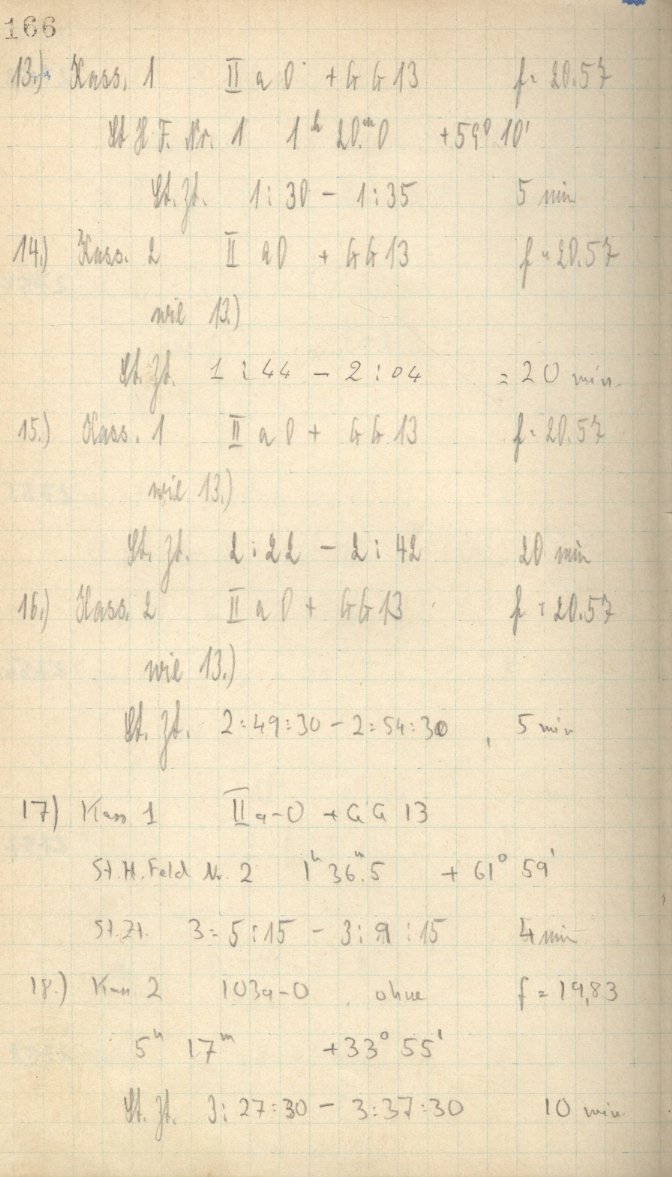 166
13.) Kass. 1 II a O + GG 13 f = 20.57
St H F. Nr. 1 1ʰ 20.ᵐ0 +59° 10'
St. Zt. 1:30 – 1:35 5 min
14.) Kass. 2 II aO + GG 13 f = 20.57
wie 13.)
St. Zt. 1:44 – 2:04 = 20 min.
15.) Kass. 1 II a O + GG 13 f = 20.57
wie 13.)
St. Zt. 2:22 – 2:42 20 min
16.) Kass. 2 II a O + GG 13 f = 20.57
wie 13.)
St. Zt. 2:49:30 – 2:54:30, 5 min
17) Kass 1 II a-O + GG 13
St. H. Feld Nr. 2 1ʰ 36ᵐ.5 + 61° 59'
St. Zt. 3:5:15 – 3:9:15 4 min
18.) Kass 2 103a-O, ohne f = 19,83
5ʰ 17ᵐ +33° 55'
St. Zt. 3:27:30 – 3:37:30 10 min.